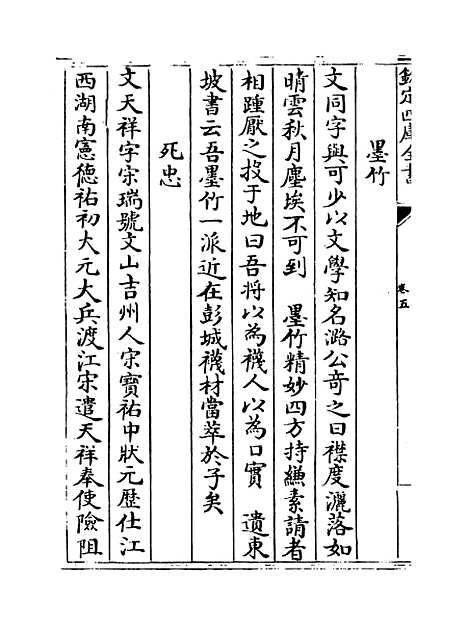 欽定四庫全書
卷五
墨竹
文同字與可少以文學知名潞公奇之曰襟度灑落如
晴雲秋月塵埃不可到　墨竹精妙四方持縑素請者
相踵厭之投于地曰吾將以為襪人以為口實　遺東
坡書云吾墨竹一派近在彭城襪材當萃於子矣
死忠
文天祥字宋瑞號文山吉州人宋寶祐中狀元歴仕江
西湖南憲德祐初大元大兵渡江宋遣天祥奉使險阻